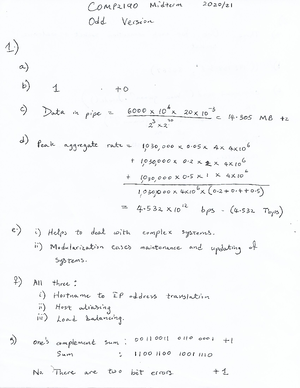 COMP2190 Midterm 2020/21
Odd Version
1.)
a)
b) 1 +0
c) Data in pipe = 6000 × 10^6 × 20 × 10^-3 / 2^3 × 2^20 = 14.305 MB +2
d) Peak aggregate rate = 1,030,000 × 0.05 × 4 × 4×10^6
+ 1,030,000 × 0.2 × 2 × 4×10^6
+ 1,030,000 × 0.5 × 1 × 4×10^6
1,030,000 × 4×10^6 × (0.2+0.4+0.5)
= 4.532 × 10^12 bps - (4.532 Tbps)
e) i) Helps to deal with complex systems.
ii) Modularization eases maintenance and updating of
systems.
f) All three:
i) Hostname to IP address translation
ii) Host aliasing
iii) Load balancing.
g) one's complement sum : 0011 0011 0110 0001 +1
Sum : 1100 1100 1001 1110
No There are two bit errors +1